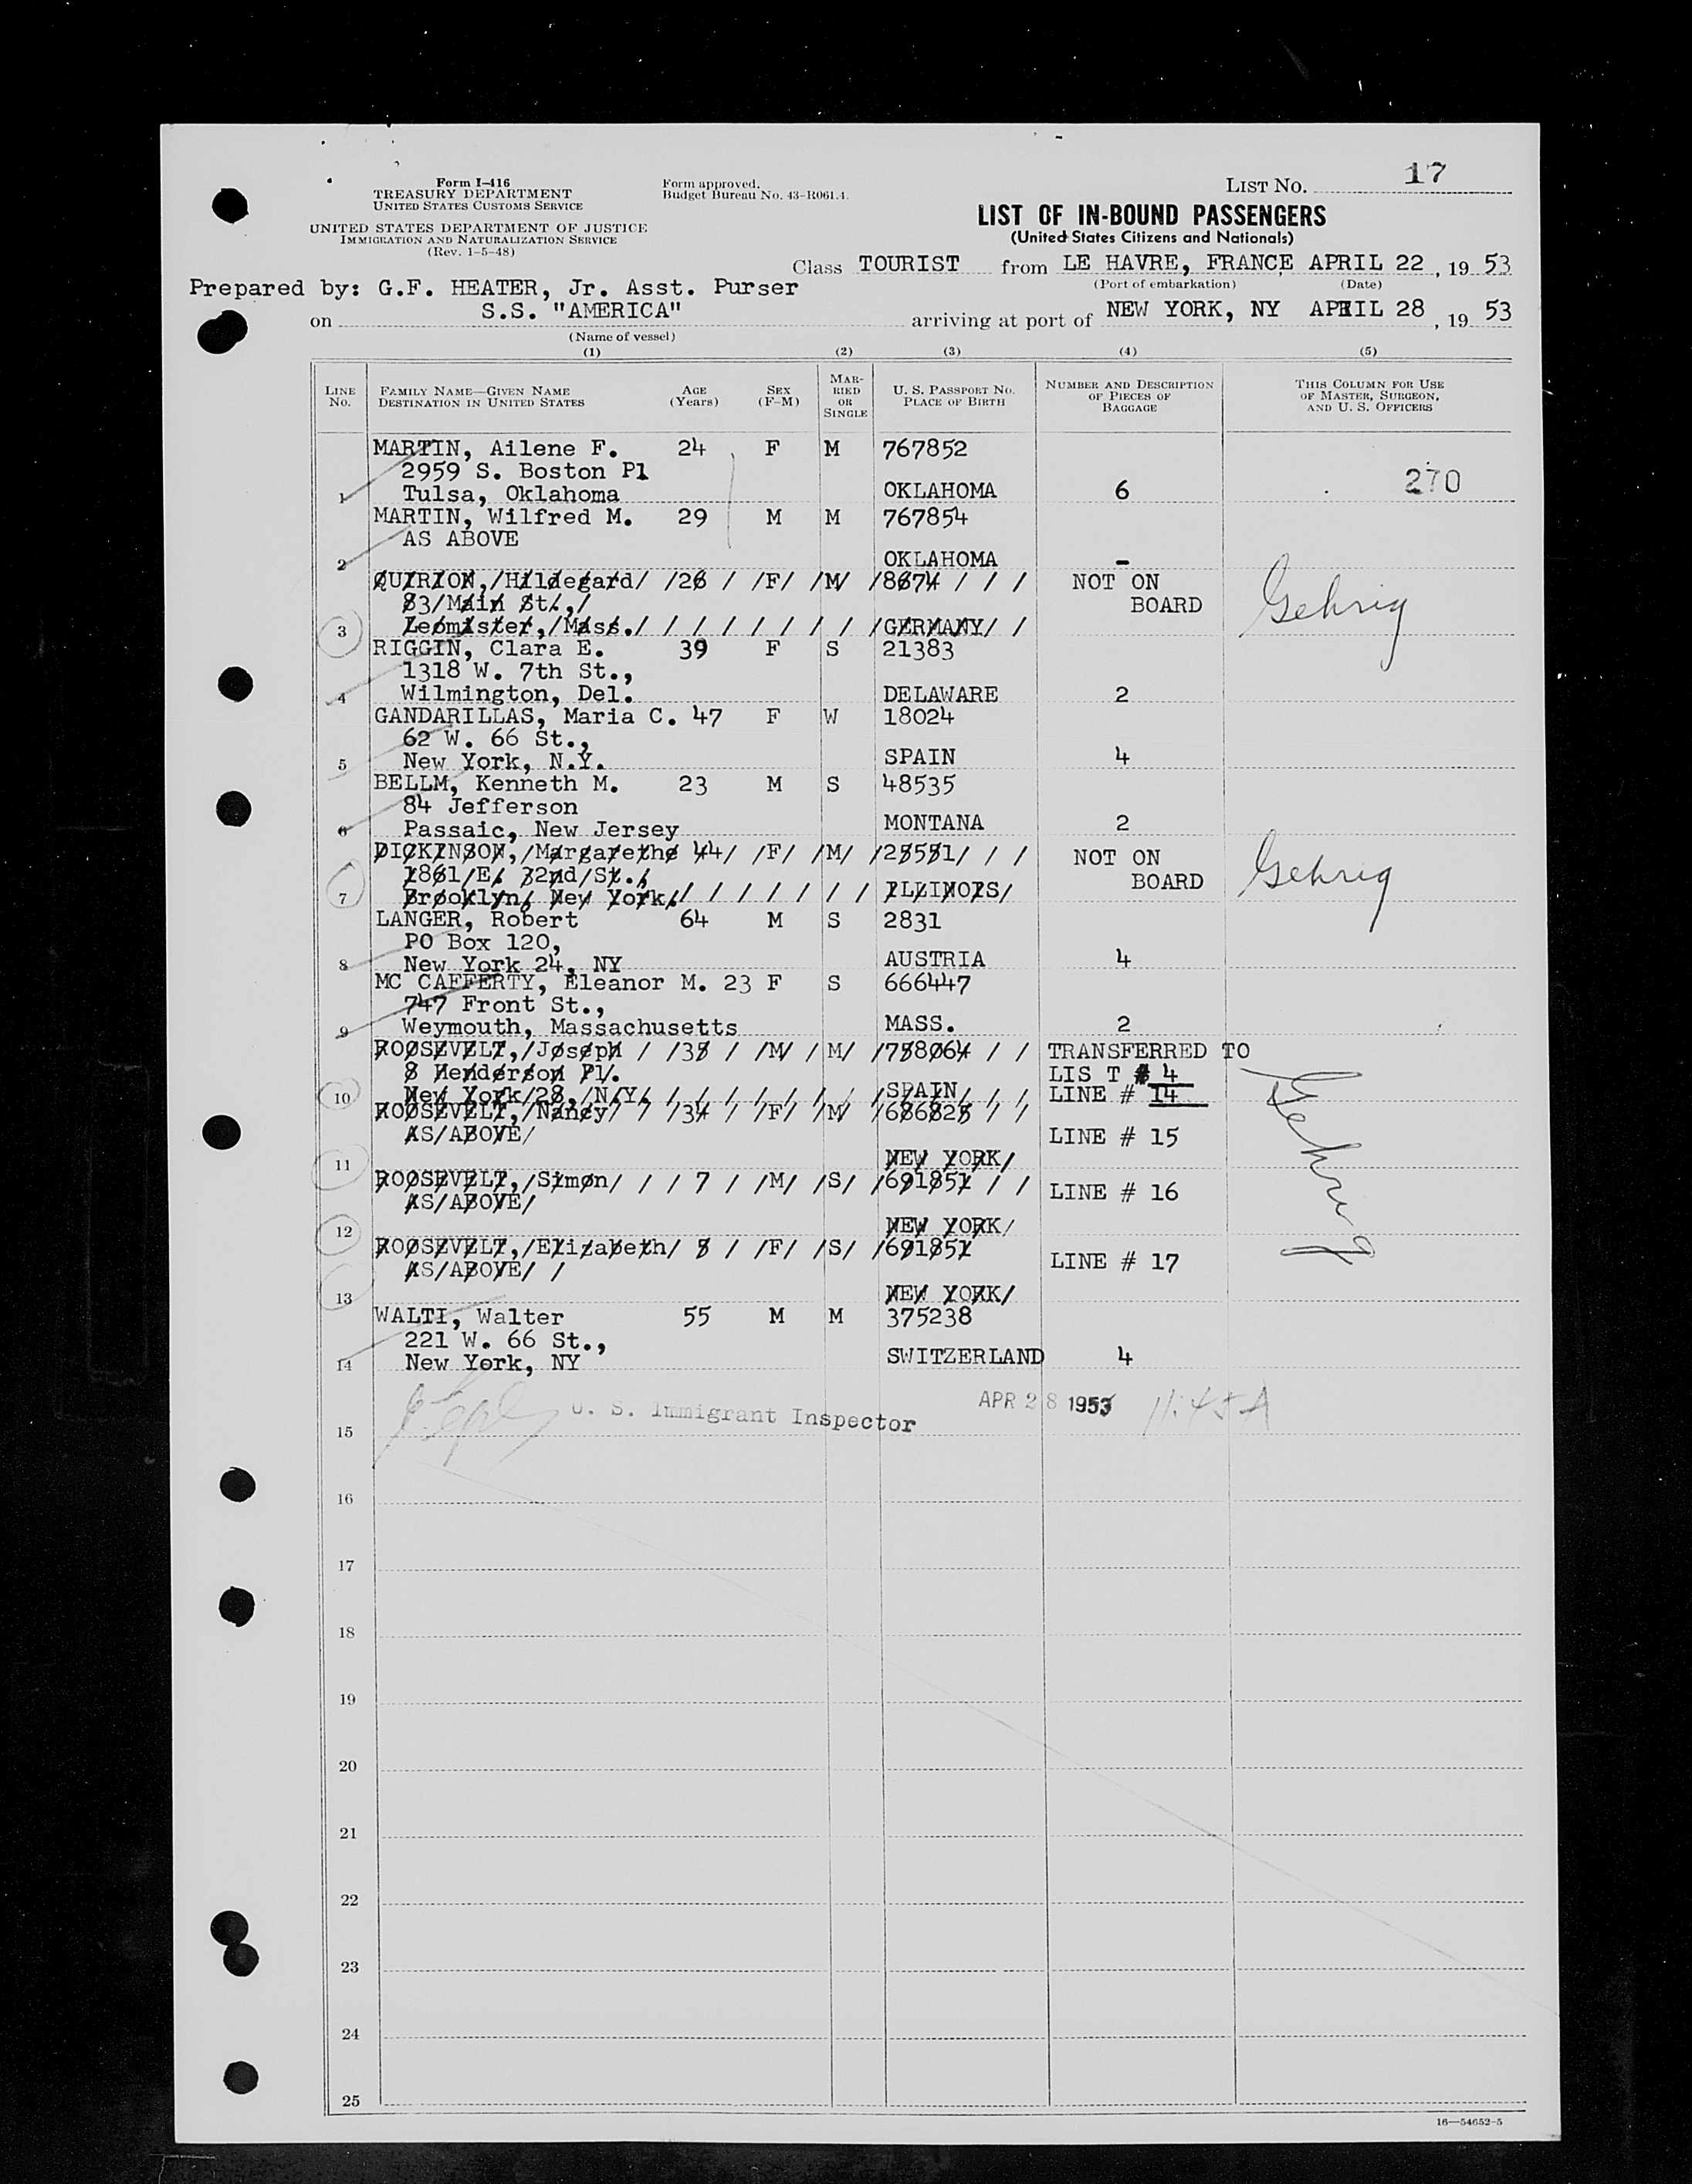 Form I-416
TREASURY DEPARTMENT
UNITED STATES CUSTOMS SERVICE
UNITED STATES DEPARTMENT OF JUSTICE
IMMIGRATION AND NATURALIZATION SERVICE
(Rev. 1-5-48)
Form approved.
Budget Bureau No. 43-R061.4.
LIST NO. 17
LIST OF IN-BOUND PASSENGERS
(United States Citizens and Nationals)
Class TOURIST from LE HAVRE, FRANCE APRIL 22, 19 53
(Port of embarkation) (Date)
Prepared by: G.F. HEATER, Jr. Asst. Purser
on S.S. "AMERICA" arriving at port of NEW YORK, NY APRIL 28, 19 53
(Name of vessel)
(1) (2) (3) (4) (5)
LINE NO. FAMILY NAME—GIVEN NAME DESTINATION IN UNITED STATES AGE (Years) SEX (F-M) MARRIED OR SINGLE U. S. PASSPORT NO. PLACE OF BIRTH NUMBER AND DESCRIPTION OF PIECES OF BAGGAGE THIS COLUMN FOR USE OF MASTER, SURGEON, AND U. S. OFFICERS
MARTIN, Ailene F. 24 F M 767852
2959 S. Boston Pl
1 Tulsa, Oklahoma OKLAHOMA 6 270
MARTIN, Wilfred M. 29 M M 767854
AS ABOVE
2 OKLAHOMA -
QUIRION, Hildegard 26 F M 8674 NOT ON
83 Main St., BOARD Gehrig
3 Leomister, Mass. GERMANY
RIGGIN, Clara E. 39 F S 21383
1318 W. 7th St.,
4 Wilmington, Del. DELAWARE 2
GANDARILLAS, Maria C. 47 F W 18024
62 W. 66 St.,
5 New York, N.Y. SPAIN 4
BELLM, Kenneth M. 23 M S 48535
84 Jefferson
6 Passaic, New Jersey MONTANA 2
DICKINSON, Margarethe 44 F M 28581 NOT ON
1861 E. 32nd St., BOARD Gehrig
7 Brooklyn, New York. ILLINOIS
LANGER, Robert 64 M S 2831
PO Box 120,
8 New York 24, NY AUSTRIA 4
MC CAFFERTY, Eleanor M. 23 F S 666447
747 Front St.,
9 Weymouth, Massachusetts MASS. 2
ROOSEVELT, Joseph 38 M M 758064 TRANSFERRED TO
8 Henderson Pl. LIS T # 4
10 New York 28, N.Y. SPAIN LINE # 14 Gehrig
ROOSEVELT, Nancy 34 F M 686828
AS ABOVE LINE # 15
11 NEW YORK
ROOSEVELT, Simon 7 M S 691851 LINE # 16
AS ABOVE
12 NEW YORK
ROOSEVELT, Elizabeth 5 F S 691851 LINE # 17
AS ABOVE
13 NEW YORK
WALTI, Walter 55 M M 375238
221 W. 66 St.,
14 New York, NY SWITZERLAND 4
U. S. Immigrant Inspector APR 28 1953 11:45A
15
16
17
18
19
20
21
22
23
24
25
16—54652-5